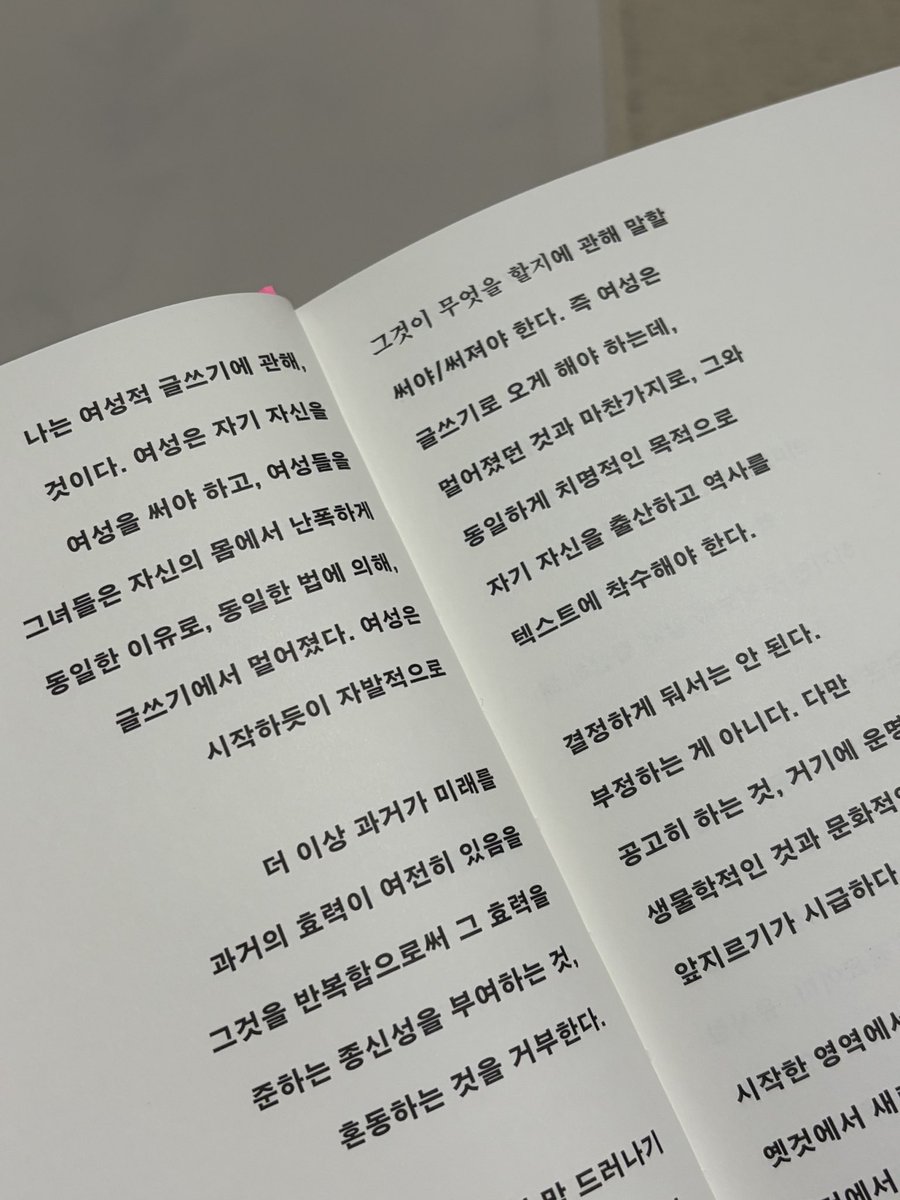 나는 여성적 글쓰기에 관해, 그것이 무엇을 할지에 관해 말할
것이다. 여성은 자기 자신을 써야/써져야 한다. 즉 여성은
여성을 써야 하고, 여성들을 글쓰기로 오게 해야 하는데,
그녀들은 자신의 몸에서 난폭하게 멀어졌던 것과 마찬가지로, 그와
동일한 이유로, 동일한 법에 의해, 동일하게 치명적인 목적으로
글쓰기에서 멀어졌다. 여성은 자기 자신을 출산하고 역사를
시작하듯이 자발적으로 텍스트에 착수해야 한다.
더 이상 과거가 미래를 결정하게 둬서는 안 된다.
과거의 효력이 여전히 있음을 부정하는 게 아니다. 다만
그것을 반복함으로써 그 효력을 공고히 하는 것, 거기에 운명
준하는 종신성을 부여하는 것, 생물학적인 것과
혼동하는 것을 거부한다. 앞지르기가 시급하다
드러나기 시작한 영역에서
옛것에서